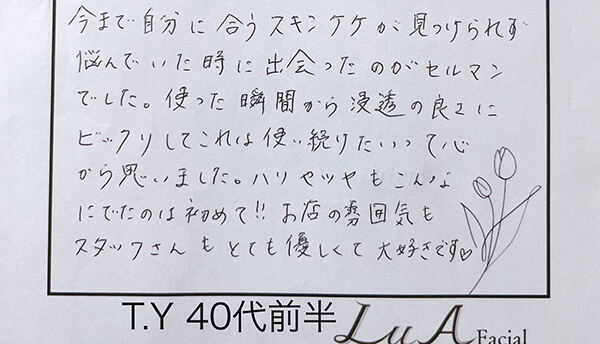 今まで自分に合うスキンケアが見つけられず
悩んでいた時に出会ったのがセルマン
でした。使った瞬間から浸透の良さに
ビックリしてこれは使い続けたいって心
から思いました。ハリやツヤもこんな
にでたのは初めて!! お店の雰囲気も
スタッフさんもとても優しくて大好きです♡
T.Y 40代前半
LuA Facial